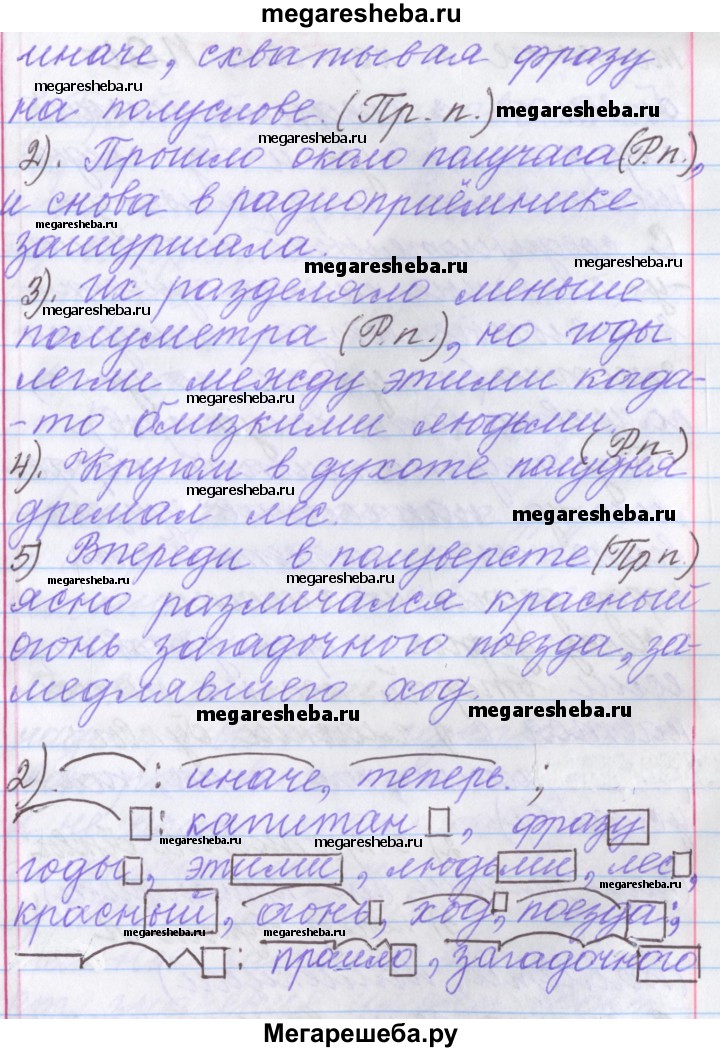 megaresheba.ru
иначе, схватывая фразу
megaresheba.ru
на полуслове. (Пр. п.) megaresheba.ru
megaresheba.ru
2). Прошло около получаса (Р.п.),
и снова в радиоприёмнике
megaresheba.ru
зашуршала.
megaresheba.ru
3). Их разделяло меньше
megaresheba.ru
полуметра (Р.п.), но годы
легли между этими когда-
megaresheba.ru
-то близкими людьми.
(Р.п.)
4). Кругом в духоте полудня
megaresheba.ru
дремал лес. megaresheba.ru
5) Впереди в полуверсте (Пр.п.)
megaresheba.ru megaresheba.ru
ясно различался красный
огонь загадочного поезда, за-
медлявшего ход.
megaresheba.ru megaresheba.ru
2). : иначе, теперь. ;
: капитан , фразу
megaresheba.ru megaresheba.ru
годы, этими, людьми, лес,
megaresheba.ru
красный, огонь, ход, поезда;
megaresheba.ru megaresheba.ru
: прошло, загадочного
Мегарешеба.ру